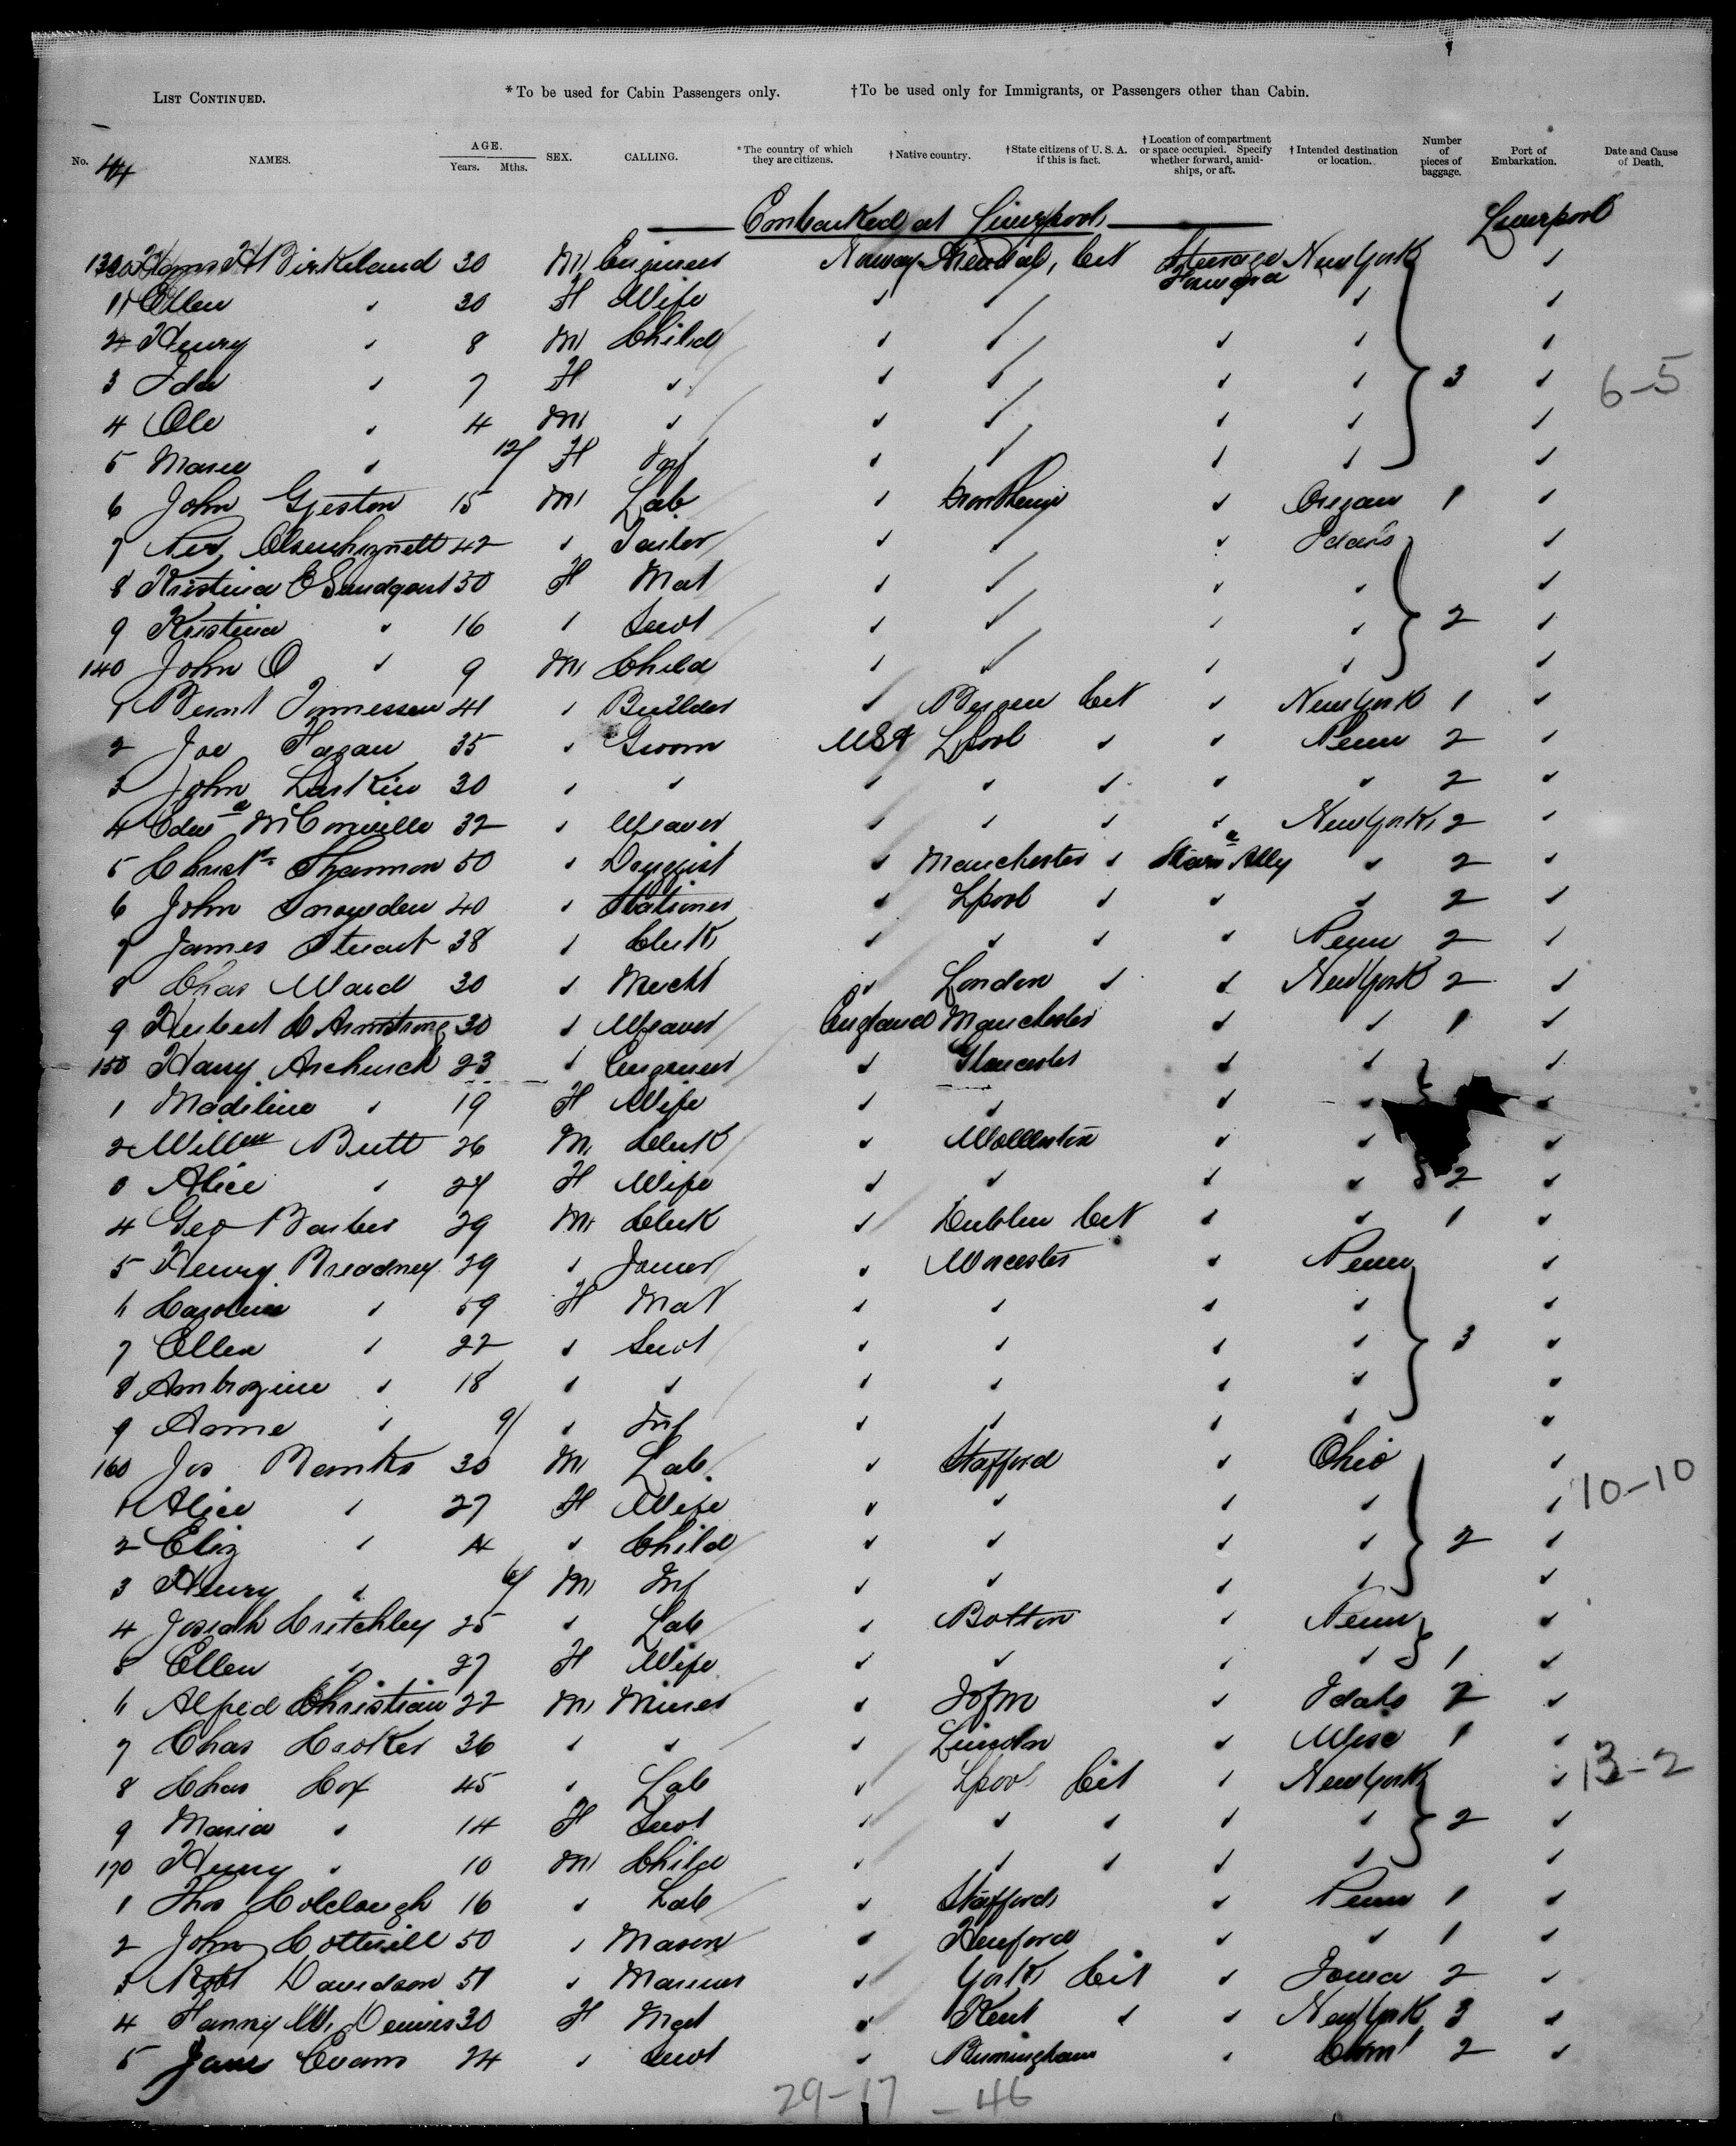 List Continued. *To be used for Cabin Passengers only. †To be used only for Immigrants, or Passengers other than Cabin.
No. 44 NAMES. AGE. Years. Mths. SEX. CALLING. *The country of which they are citizens. †Native country. †State citizens of U. S. A. if this is fact. †Location of compartment or space occupied. Specify whether forward, amidships, or aft. †Intended destination or location. Number of pieces of baggage. Port of Embarkation. Date and Cause of Death.
Embarked at Liverpool Liverpool
130 H Birkeland 30 M Engineer Norway Cit Steerage Forward New York ✓
1 Ellen ✓ 30 F Wife ✓ ✓ ✓ ✓
2 Henry ✓ 8 M Child ✓ ✓ ✓ ✓ ✓
3 Ida ✓ 7 F ✓ ✓ ✓ ✓ ✓ 3 ✓ 6-5
4 Ole ✓ 4 M ✓ ✓ ✓ ✓ ✓ ✓
5 Marie ✓ 12/ F Inf ✓ ✓ ✓ ✓ ✓
6 John Gjeston 15 M Lab ✓ Trondhenj ✓ Oregan 1 ✓
7 42 ✓ Tailor ✓ ✓ ✓ Idaho ✓
8 Kristina E Sandgart 50 F Mat ✓ ✓ ✓ ✓ ✓
9 Kristina ✓ 16 ✓ Servt ✓ ✓ ✓ ✓ 2 ✓
140 John O ✓ 9 M Child ✓ ✓ ✓ ✓ ✓
1 Bernt Tonnessen 41 ✓ Builder ✓ Bergen Cit ✓ New York 1 ✓
2 Joe Fagan 35 ✓ Groom USA Lpool ✓ ✓ Penn 2 ✓
3 John Larkin 30 ✓ ✓ ✓ ✓ ✓ ✓ ✓ 2 ✓
4 Edwd McConville 32 ✓ Weaver ✓ ✓ ✓ ✓ New York 2 ✓
5 Christr Shannon 50 ✓ Druggist ✓ Manchester ✓ ✓ 2 ✓
6 John Snowden 40 ✓ Stationer ✓ Lpool ✓ ✓ ✓ 2 ✓
7 James Stuart 38 ✓ Clerk ✓ ✓ ✓ ✓ Penn 2 ✓
8 Chas Ward 30 ✓ Mercht ✓ London ✓ ✓ New York 2 ✓
9 Herbert C Armstrong 30 ✓ Weaver England Manchester ✓ ✓ 1 ✓
150 Harry Archurch 23 ✓ Engraver ✓ Gloucester ✓ ✓ ✓
1 Madeline ✓ 19 F Wife ✓ ✓ ✓ ✓ ✓
2 Willm Butt 26 M Clerk ✓ ✓ ✓ ✓
3 Alice ✓ 24 F Wife ✓ ✓ ✓ ✓ 2 ✓
4 Geo Barber 29 M Clerk ✓ Dublin Cit ✓ ✓ 1 ✓
5 Henry Breadney 29 ✓ Joiner ✓ Worcester ✓ Penn ✓
6 Caroline ✓ 59 F Mat ✓ ✓ ✓ ✓ ✓
7 Ellen ✓ 22 ✓ Servt ✓ ✓ ✓ ✓ 3 ✓
8 Ambrozine ✓ 18 ✓ ✓ ✓ ✓ ✓ ✓ ✓
9 Anne ✓ 9/ ✓ Inf ✓ ✓ ✓ ✓ ✓
160 Jos Banks 30 M Lab ✓ Stafford ✓ Ohio ✓
1 Alice ✓ 27 F Wife ✓ ✓ ✓ ✓ ✓ 10-10
2 Eliz ✓ 4 ✓ Child ✓ ✓ ✓ ✓ 2 ✓
3 Henry ✓ M Inf ✓ ✓ ✓ ✓ ✓
4 Josiah Critchley 25 ✓ Lab ✓ Bolton ✓ Penn ✓
5 Ellen ✓ 27 F Wife ✓ ✓ ✓ ✓ 1 ✓
6 Alfred Christian 22 M Miner ✓ IofM ✓ Idaho 2 ✓
7 Chas Crooker 36 ✓ ✓ ✓ Lincoln ✓ Wisc 1 ✓
8 Chas Cox 45 ✓ Lab ✓ Lpool Cit ✓ New York ✓ 13-2
9 Maria ✓ 14 F Servt ✓ ✓ ✓ ✓ ✓ 2 ✓
170 Henry ✓ 10 M Child ✓ ✓ ✓ ✓ ✓ ✓
1 Thos Colclough 16 ✓ Lab ✓ Stafford ✓ Penn 1 ✓
2 John Cotterill 50 ✓ Mason ✓ Hereford ✓ ✓ 1 ✓
3 Robt Davidson 51 ✓ Mariner ✓ York Cit ✓ Iowa 2 ✓
4 Fanny W. Dennis 30 F Mat ✓ Kent ✓ ✓ New York 3 ✓
5 Jane Evans 24 ✓ Servt ✓ Birmingham ✓ Conn 2 ✓
29-17 - 46